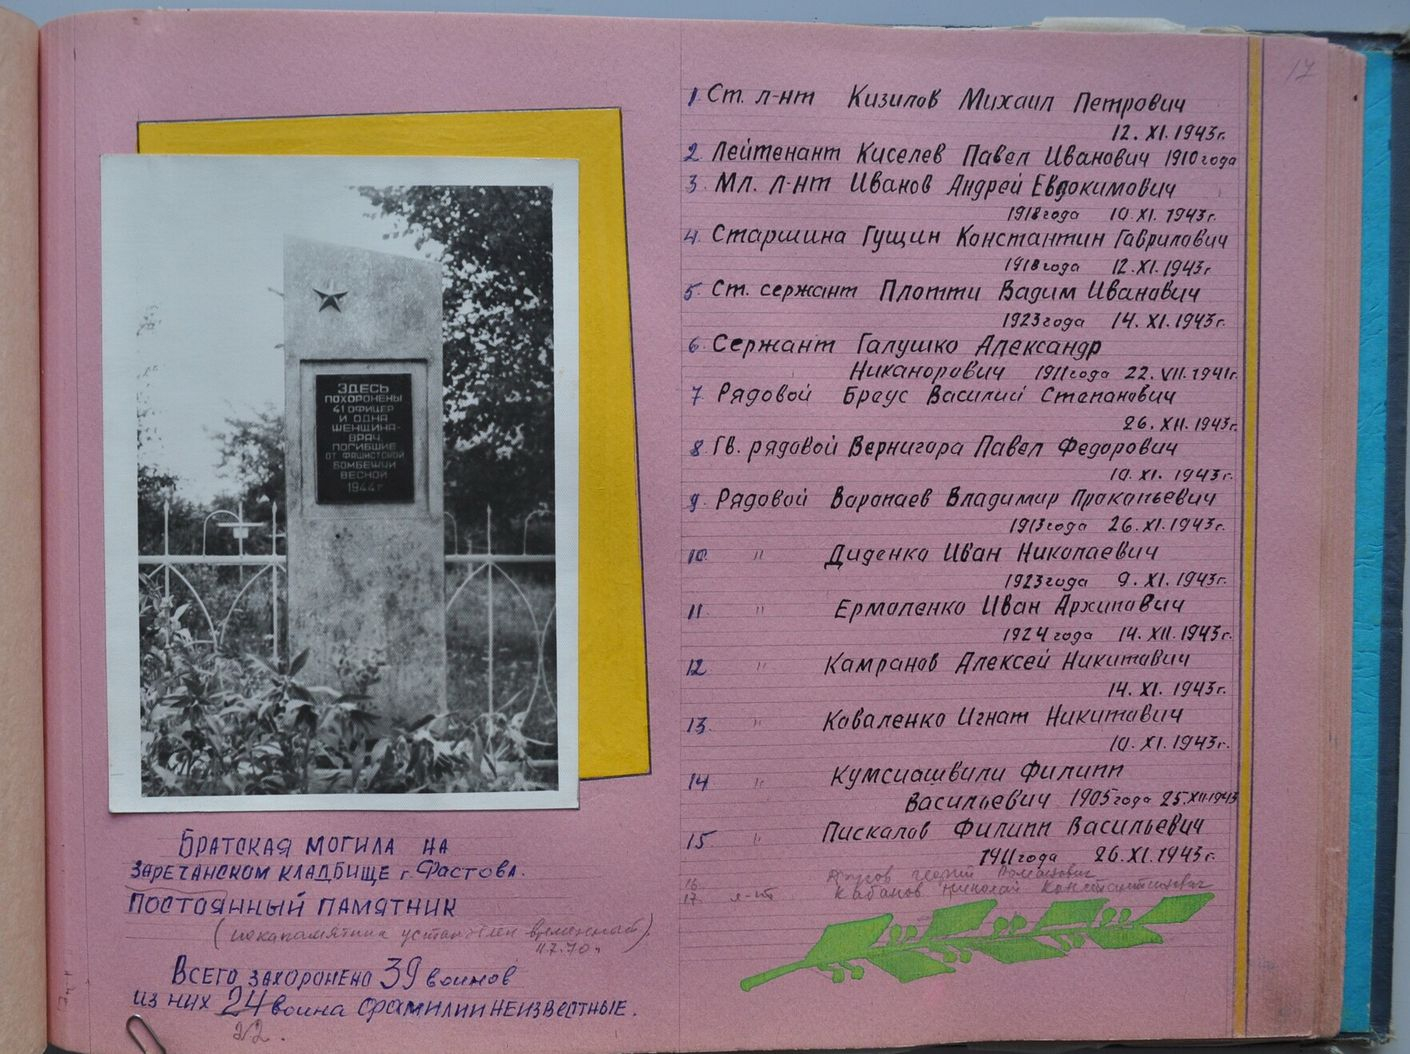 ЗДЕСЬ
ПОХОРОНЕНЫ
41 ОФИЦЕР
И ОДНА
ЖЕНЩИНА-
ВРАЧ
ПОГИБШИЕ
ОТ ФАШИСТСКОЙ
БОМБЕЖКИ
ВЕСНОЙ
1944 г
БРАТСКАЯ МОГИЛА НА
ЗАРЕЧАНСКОМ КЛАДБИЩЕ г. ФАСТОВА.
ПОСТОЯННЫЙ ПАМЯТНИК
(пока памятник установлен временный)
11.7.70 г.
ВСЕГО ЗАХОРОНЕНО 39 воинов
ИЗ НИХ 24 воина ФАМИЛИИ НЕИЗВЕСТНЫЕ.
22.
17
1. Ст. л-нт Кизилов Михаил Петрович
12. XI. 1943г.
2. Лейтенант Киселев Павел Иванович 1910 года
3. Мл. л-нт Иванов Андрей Евдокимович
1918 года 10. XI. 1943г.
4. Старшина Гущин Константин Гаврилович
1918 года 12. XI. 1943г.
5. Ст. сержант Плотти Вадим Иванович
1923 года 14. XI. 1943г.
6. Сержант Галушко Александр
Никанорович 1911 года 22. VII. 1941г.
7. Рядовой Бреус Василий Степанович
26. XII. 1943г.
8. Гв. рядовой Вернигора Павел Федорович
10. XI. 1943г.
9. Рядовой Варапаев Владимир Пракапьевич
1913 года 26. XI. 1943г.
10. " Диденко Иван Николаевич
1923 года 9. XI. 1943г.
11 " Ермаленко Иван Архипович
1924 года 14. XII. 1943г.
12 " Камранов Алексей Никитович
14. XI. 1943г.
13. " Коваленко Игнат Никитович
10. XI. 1943г.
14 " Кумсиашвили Филипп
Васильевич 1905 года 25. XII. 1943
15 " Пискалов Филипп Васильевич
1911 года 26. XI. 1943г.
16. Георгий Романович
17. л-нт Кабанов Николай Константинович